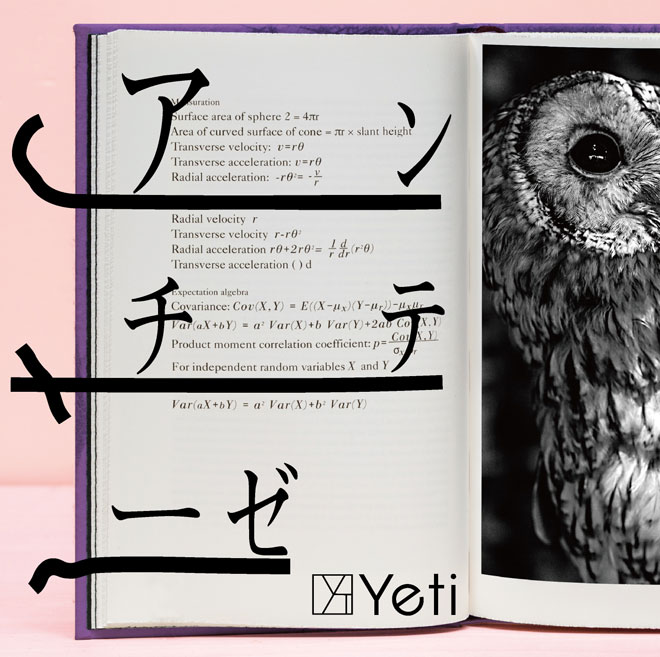 アン
チテ
ーゼ
Mensuration
Surface area of sphere 2 = 4πr
Area of curved surface of cone = πr × slant height
Transverse velocity: v=rθ
Transverse acceleration: v=rθ
Radial acceleration: -rθ²= -v/r
Radial velocity r
Transverse velocity r-rθ²
Radial acceleration rθ+2rθ²= 1/r d/dr(r²θ)
Transverse acceleration ( ) d
Expectation algebra
Covariance: Cov(X,Y) = E((X-μx)(Y-μr))-μxμr
Var(aX+bY) = a² Var(X)+b Var(Y)+2ab Cov(X,Y)
Product moment correlation coefficient: p=Cov(X,Y)/
For independent random variables X and Y
Var(aX+bY) = a² Var(X)+b² Var(Y)
Yeti